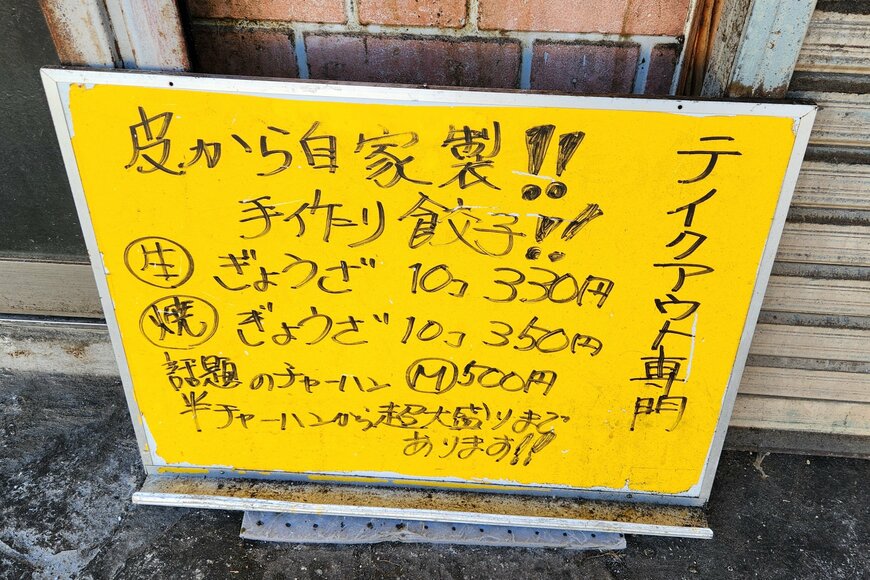 皮から自家製!!
手作り餃子!!
生 ぎょうざ 10コ 330円
焼 ぎょうざ 10コ 350円
話題のチャーハン M 500円
半チャーハンから超大盛りまで
あります!!
テイクアウト専門